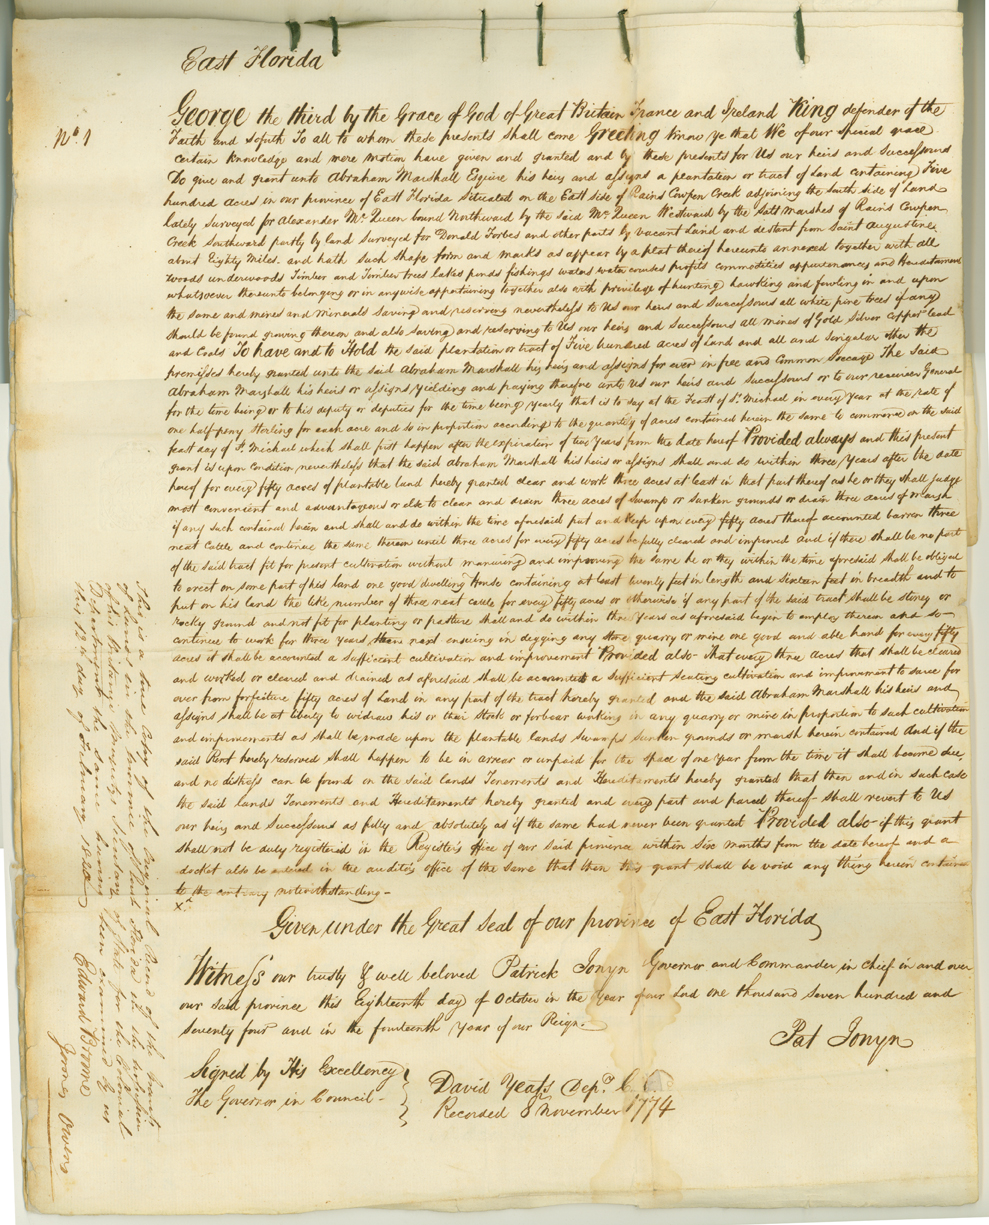 East Florida
No. 1
George the third by the Grace of God of Great Britain France and Ireland King defender of the
Faith and so forth To all to whom these presents shall come Greeting Know ye that We of our special grace
certain Knowledge and mere motion have given and granted and by these presents for Us our heirs and Successours
Do give and grant unto Abraham Marshall Esquire his heirs and assigns a plantation or tract of Land containing Five
hundred acres in our province of East Florida Situated on the East side of Rains Cowpen Creek adjoining the South side of Land
lately surveyed for Alexander Mc. Queen bound Northward by the said Mc. Queen Westward by the Salt marshes of Rains Cowpen
Creek Southward partly by land surveyed for Donald Forbes and other parts by vacant Land and distant from Saint Augustine
about Eighty Miles. and hath such shape form and marks as appear by a plat thereof hereunto annexed together with all
woods underwoods Timber and Timber trees lakes ponds fishings waters water courses profits commodities appurtenances and Hereditaments
whatsoever thereunto belonging or in anywise appertaining together also with privilege of hunting hawking and fowling in and upon
the same and mines and minerals saving and reserving nevertheless to Us our heirs and Successours all white pine trees if any
should be found growing thereon and also saving and reserving to Us our heirs and Successours all mines of Gold Silver Copper lead
and Coals To have and to Hold the said plantation or tract of Five hundred acres of Land and all and singular other the
premisses hereby granted unto the said Abraham Marshall his heirs and assigns for ever in free and Common Soccage The said
Abraham Marshall his heirs or assigns yielding and paying therefore unto Us our heirs and Successours or to our receiver General
for the time being or to his deputy or deputies for the time being yearly that is to say at the Feast of St. Michael in every year at the rate of
one half-peny sterling for each acre and so in proportion according to the quantity of acres contained herein the same to commence on the said
feast day of St. Michael which shall first happen after the expiration of two years from the date hereof Provided always and this present
grant is upon Condition nevertheless that the said Abraham Marshall his heirs or assigns shall and do within three years after the date
hereof for every fifty acres of plantable land hereby granted clear and work three acres at least in that part thereof as he or they shall judge
most convenient and advantageous or else to clear and drain three acres of swamp or sunken grounds or drain three acres of marsh
if any such contained herein and shall and do within the time aforesaid put and keep upon every fifty acres thereof accounted barren three
neat Cattle and continue the same thereon until three acres for every fifty acres be fully cleared and improved and if there shall be no part
of the said tract fit for present cultivation without manuring and improving the same he or they within the time aforesaid shall be obliged
to erect on some part of his land one good dwelling House containing at least twenty feet in length and sixteen feet in breadth and to
put on his land the like number of three neat cattle for every fifty acres or otherwise if any part of the said tract shall be stoney or
rocky ground and not fit for planting or pasture shall and do within three years as aforesaid begin to employ thereon and so
continue to work for three years then next ensuing in digging any stone quarry or mine one good and able hand for every fifty
acres it shall be accounted a sufficient cultivation and improvement Provided also That every three acres that shall be cleared
and worked or cleared and drained as aforesaid shall be accounted a sufficient seating cultivation and improvement to save for
ever from forfeiture fifty acres of Land in any part of the tract hereby granted and the said Abraham Marshall his heirs and
assigns shall be at liberty to widraw his or their stock or forbear working in any quarry or mine in proportion to such cultivation
and improvements as shall be made upon the plantable lands swamps sunken grounds or marsh herein contained And if the
said Rent hereby reserved shall happen to be in arrear or unpaid for the space of one year from the time it shall become due
and no distress can be found on the said lands Tenements and Hereditaments hereby granted that then and in such case
the said lands Tenements and Hereditaments hereby granted and every part and parcel thereof shall revert to Us
our heirs and Successours as fully and absolutely as if the same had never been granted Provided also if this grant
shall not be duly registered in the Register's office of our said province within Six months from the date hereof and a
docket also be entered in the auditor's office of the same that then this grant shall be void any thing herein contained
to the contrary notwithstanding
Given under the Great Seal of our province of East Florida
Witness our trusty & well beloved Patrick Tonyn Governor and Commander in chief in and over
our said province this Eighteenth day of October in the Year of our Lord one thousand seven hundred and
seventy four and in the fourteenth year of our Reign.
Pat Tonyn
Signed by His Excellency
The Governor in Council
David Yeats Depy. C.
Recorded 8 November 1774
This is a true Copy of the Original Record of the Grants
of Lands in the province of East Florida in the possession
of his Britanic Majesty's Secretary of State for the Colonial
Department the same having been examined by us
this 12th day of February 1820
Edward Browne
James Owens